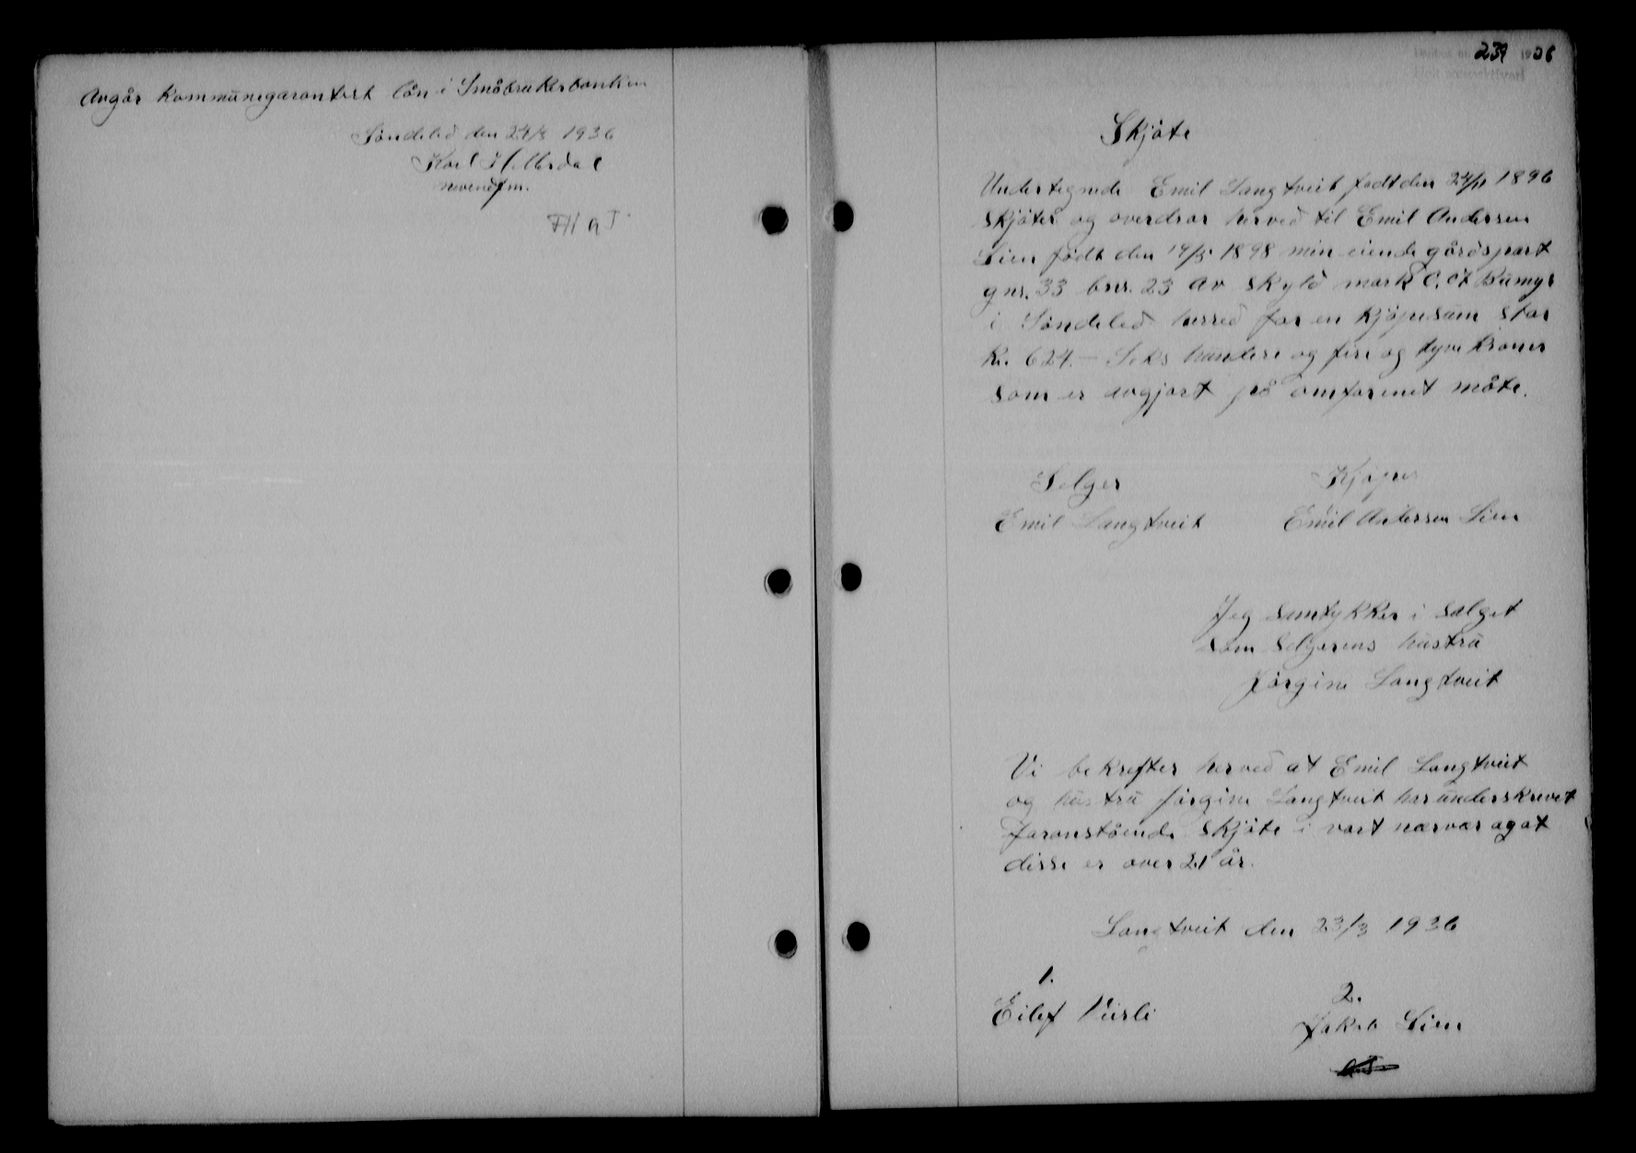 Avgår Kommunegarantert lån i Småbrukerbanken
Søndeled den 24/3 1936
Karl Hellerdal
nevendfm.
Dagbok nr. 239 1936
Skjøte
Undertegnede Emil Langtveit født den 24/11 1896
skjøter og overdrar herved til Emil Andersen
Lien født den 14/5 1898 min eiende gårdspart
gnr. 33 bnr. 23 av skyld mark
i Søndeled herred for en kjøpesum stor
kr. 624.— Seks hundere og fire og tyve kroner
som er avgjort på omforenet måte.
Selger Kjøper
Emil Langtveit Emil Andersen Lien
Jeg samtykker i salget
som selgerens hustru
Jørgine Langtveit
Vi bekrefter herved at Emil Langtveit
og hustru Jørgine Langtveit har underskrevet
foranstående skjøte i vort nærvær og at
disse er over 21 år.
Langtveit den 23/3 1936
1. 2.
Eilef Jakob Lien